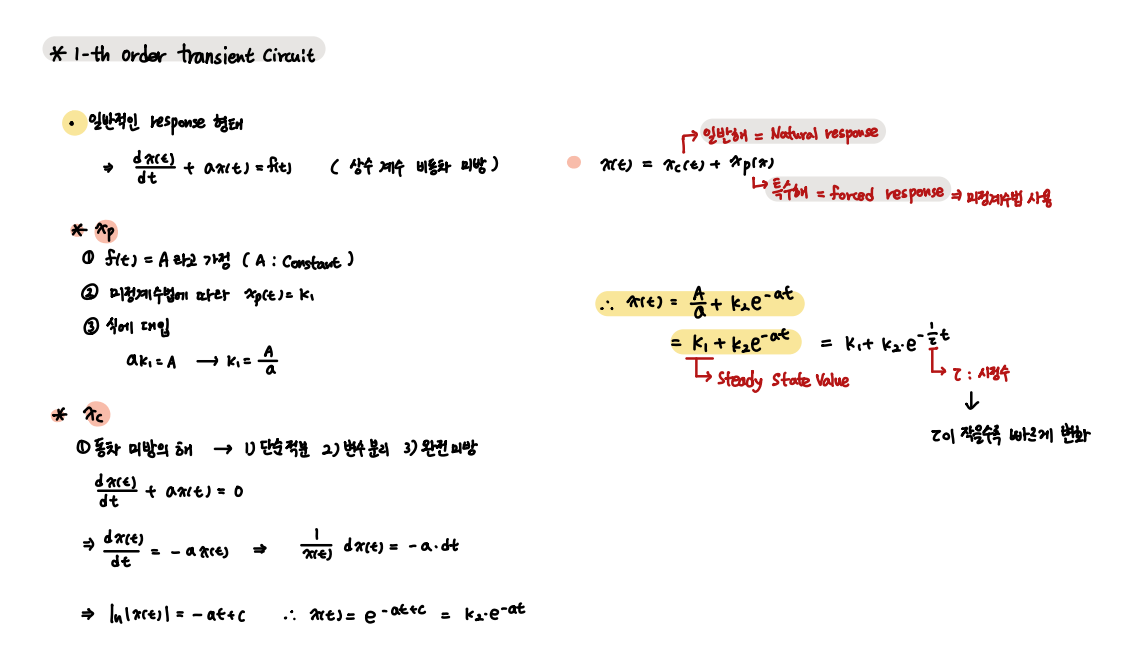 * 1-th order transient Circuit
• 일반적인 response 형태
⇒ dx(t)/dt + ax(t) = f(t) ( 상수 계수 비동차 미방 )
* xp
① f(t) = A 라고 가정 ( A : Constant )
② 미정계수법에 따라 xp(t) = k₁
③ 식에 대입
ak₁ = A → k₁ = A/a
* xc
① 동차 미방의 해 → 1) 단순적분 2) 변수분리 3) 완전미방
dx(t)/dt + ax(t) = 0
⇒ dx(t)/dt = -ax(t) ⇒ 1/x(t) dx(t) = -a·dt
⇒ ln|x(t)| = -at+c ∴ x(t) = e^(-at+c) = k₂·e^(-at)
일반해 = Natural response
x(t) = xc(t) + xp(x)
특수해 = forced response ⇒ 미정계수법 사용
∴ x(t) = A/a + k₂e^(-at)
= k₁ + k₂e^(-at) = k₁ + k₂·e^(-(1/τ)t)
Steady State Value
τ : 시정수
↓
τ이 작을수록 빠르게 변화